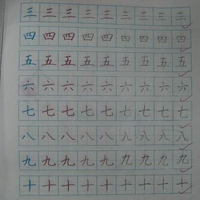 三 三 三 三 三 三 三 三 三
四 四 四 四 四 四 四 四 四
五 五 五 五 五 五 五 五 五
六 六 六 六 六 六 六 六 六
七 七 七 七 七 七 七 七 七
八 八 八 八 八 八 八 八 八
九 九 九 九 九 九 九 九 九
十 十 十 十 十 十 十 十 十